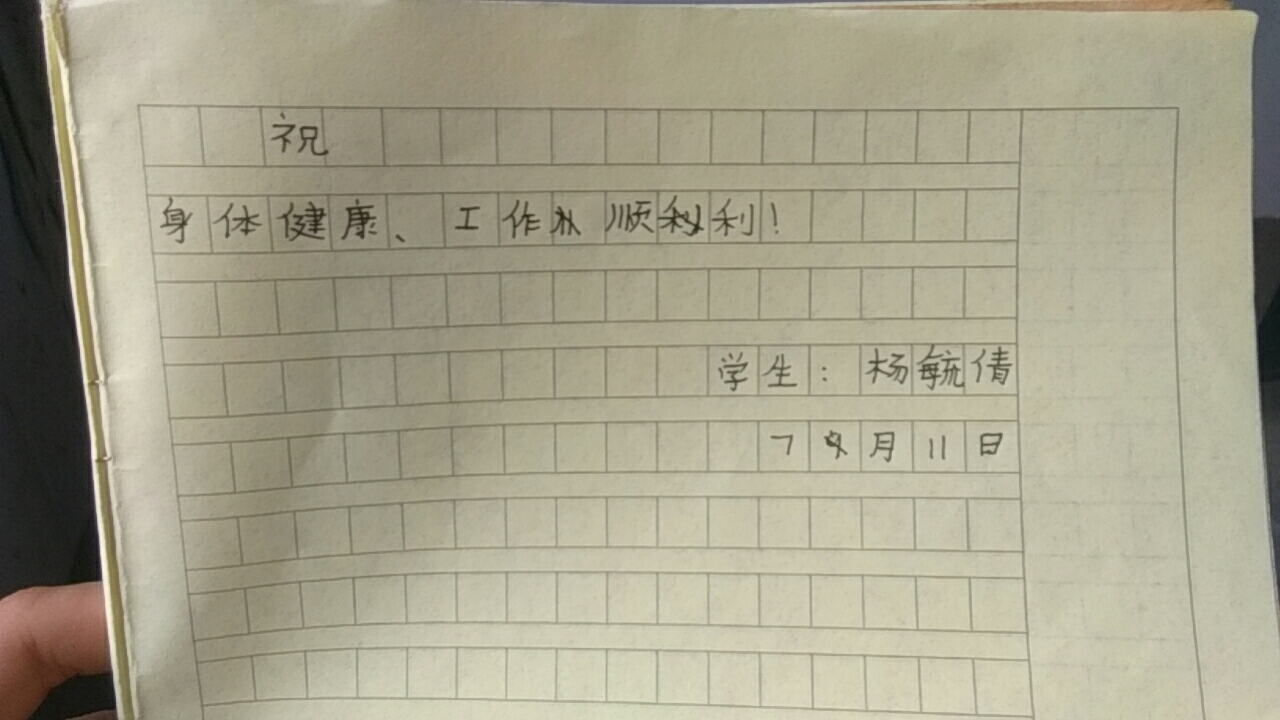 祝
身体健康、工作顺利!
学生:杨毓倩
7月11日